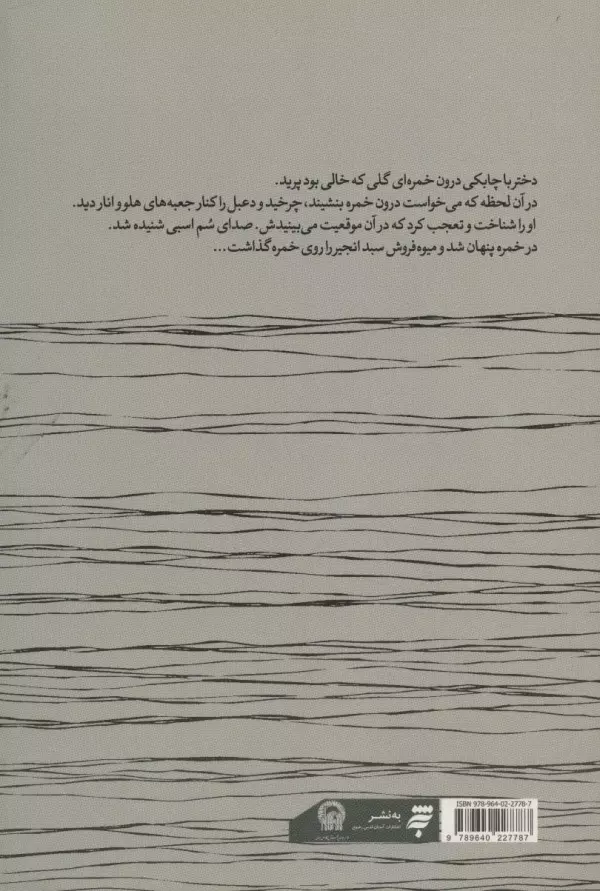 دختر با چابکی درون خمره‌ای گلی که خالی بود پرید.
در آن لحظه که می‌خواست درون خمره بنشیند، چرخید و دعبل را کنار جعبه‌های هلو و انار دید.
او را شناخت و تعجب کرد که در آن موقعیت می‌بیندش. صدای سُم اسبی شنیده شد.
در خمره پنهان شد و میوه‌فروش سبد انجیر را روی خمره گذاشت...
ISBN 978-964-02-2778-7
به‌نشر
انتشارات آستان قدس رضوی
9 789640 227787